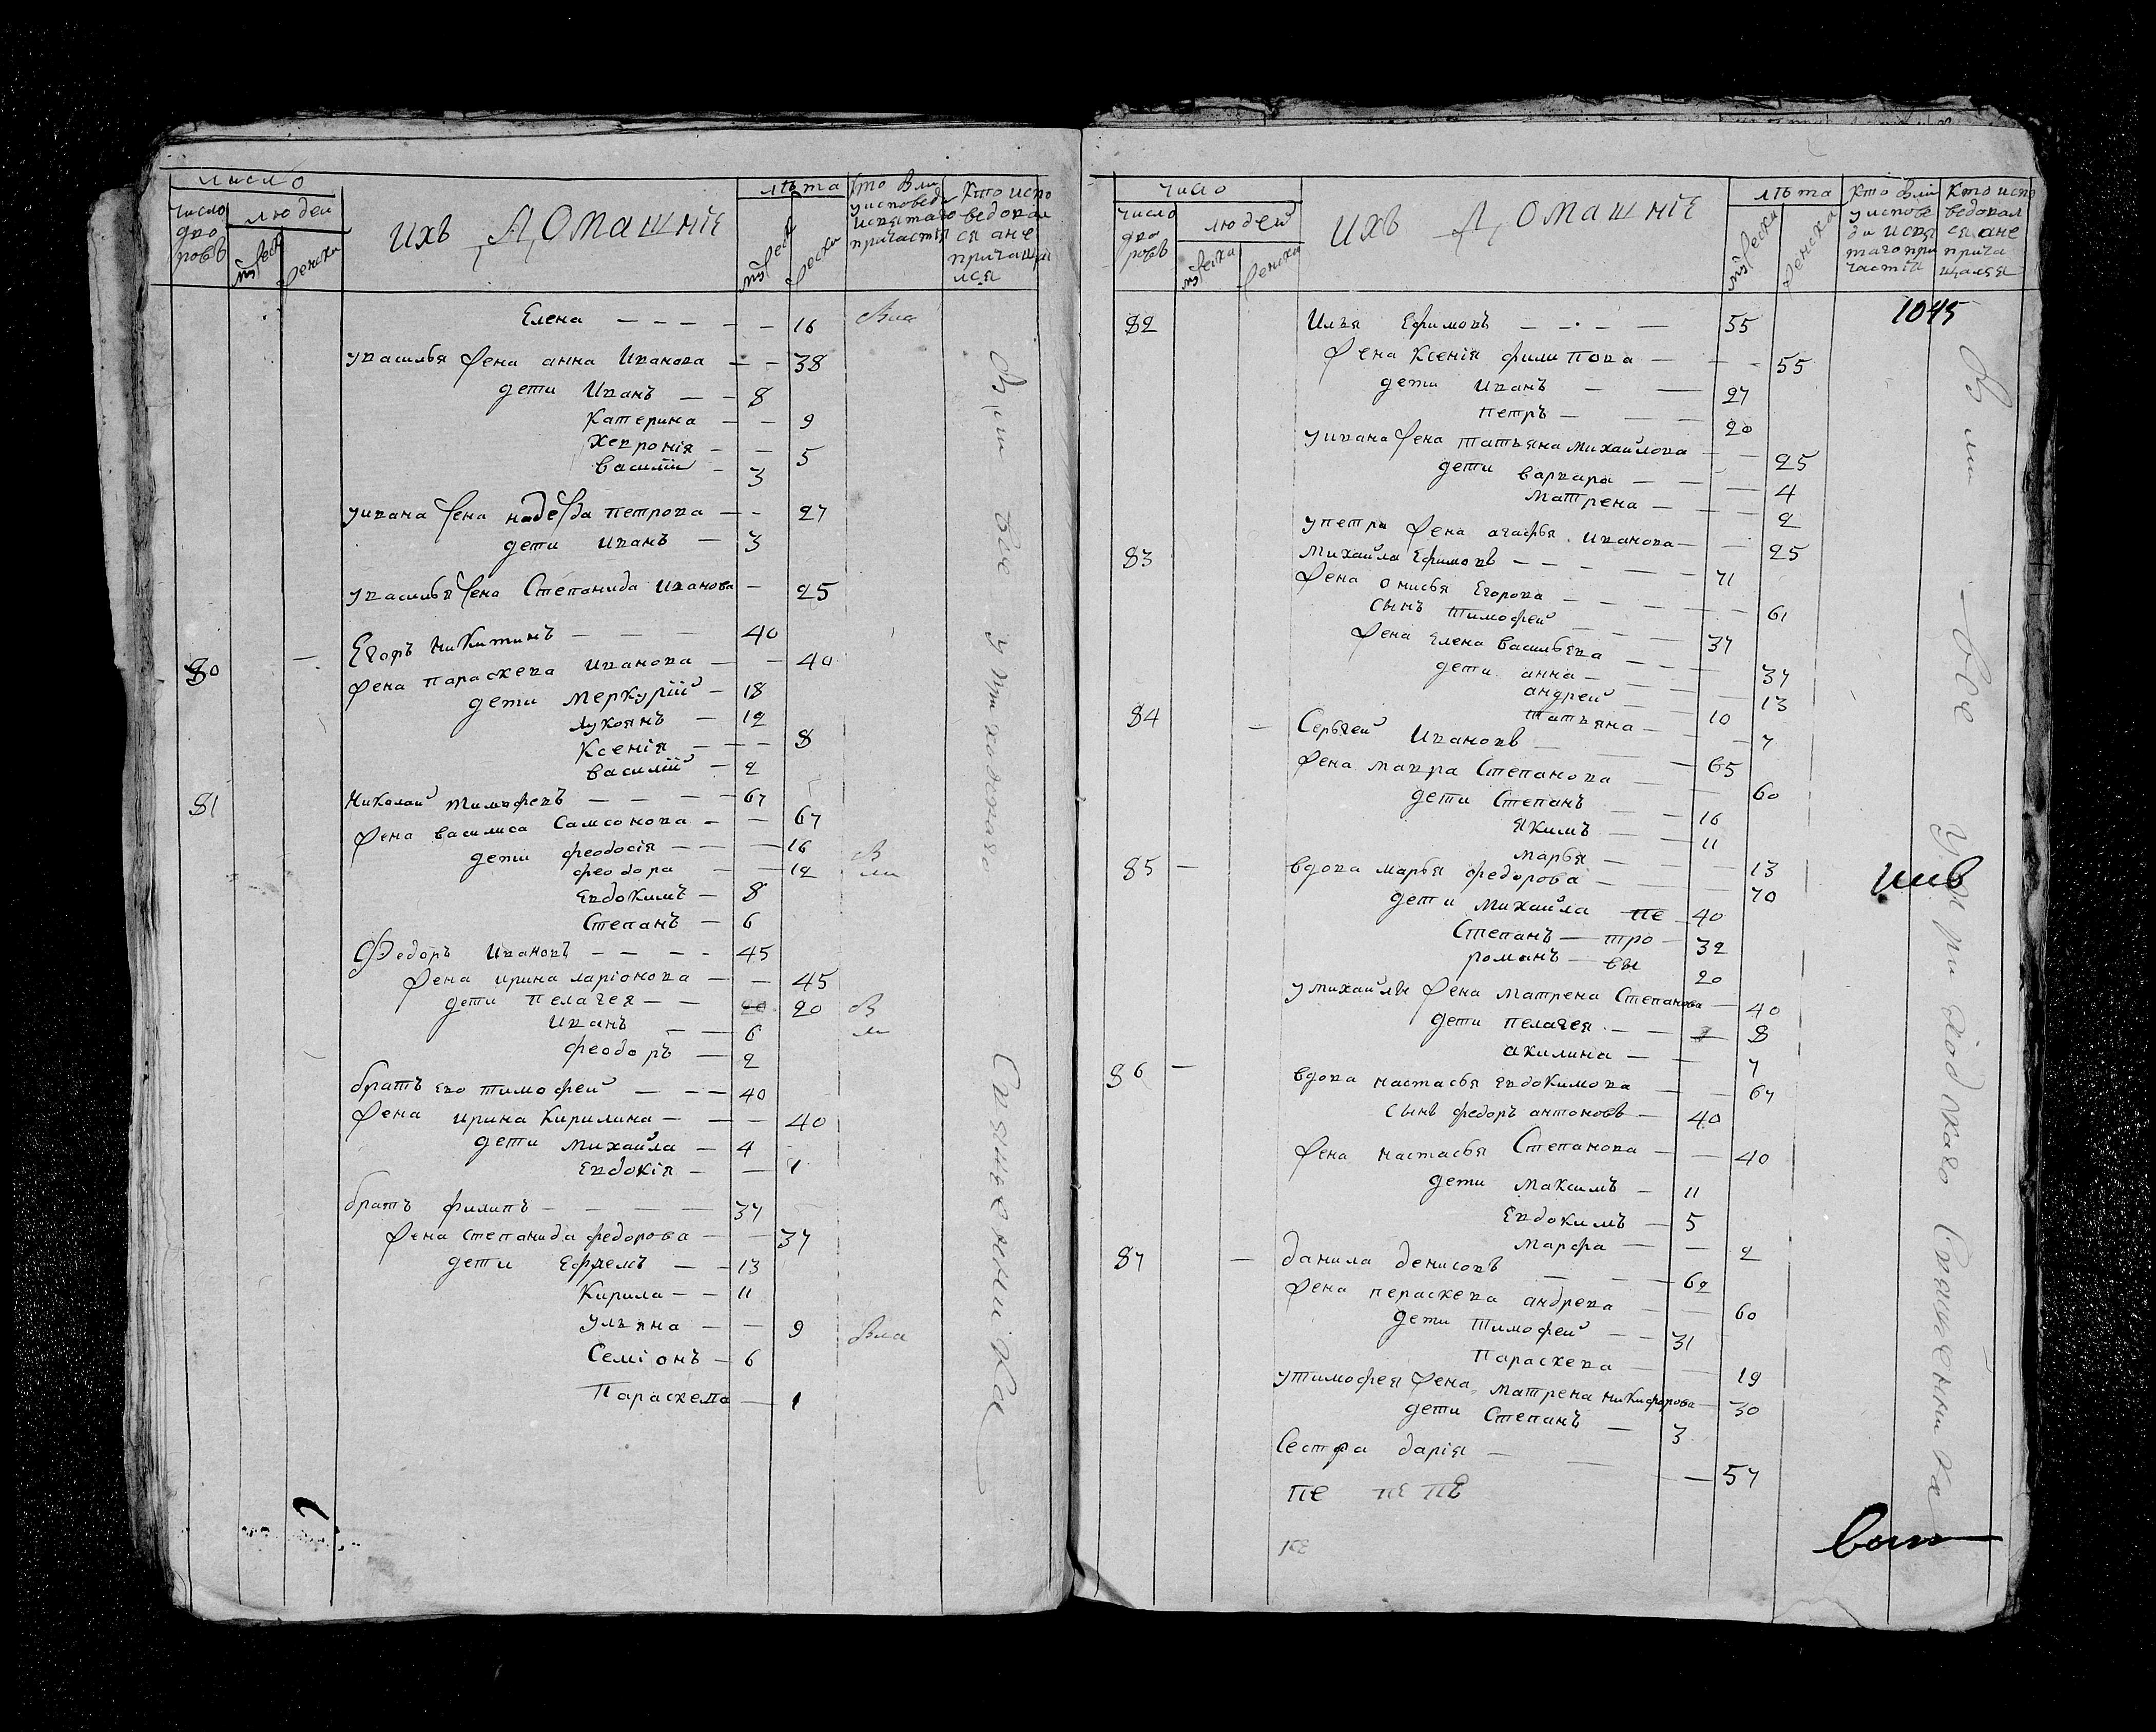 число
число дворовъ
людей
мужеска
женска
ихъ Домашнїе
лѣта
мужеск
женска
кто вли у исповеди и святаго причастія
кто испо ведовал ся а не причащал лся
Елена — — — — — 16 Вла
у василья жена анна Иванова — — 38
дети Иванъ — — 8
Катерина — — 9
Хевронія — — 5
василій — 3
у ивана жена надежда петрова — — 27
дети иванъ — 3
у василья жена Степанида иванова — 25
80 — Егоръ никитинъ — — — 40
жена параскева иванова — — 40
дети меркурій — 18
лукоянъ — 12
Ксенія — — — 8
василій — 2
81 николай тимофевъ — — — — 67
жена василиса Самсонова — — 67
дети феодосія — — — 16 В
феодора — — 12 ли
Евдокимъ — 8
Степанъ — 6
Федоръ ивановъ — — — — 45
жена ирина ларіонова — — 45
дети пелагея — — 20 20 В
иванъ — — 6 ли
феодоръ — 2
братъ ево тимофей — — — 40
жена ирина Кирилина — — — 40
дети михайла — 4
Евдокія — — 1
братъ филипъ — — — — 37
жена степанида федорова — — 37
дети Ефремъ — — 13
Кирила — — 11
ульяна — — 9 Вла
Семіонъ — 6
Параскева — 1
Вли все у приходскаго Священника
число
число дворовъ
людей
мужеска
женска
ихъ Домашніе
лѣта
мужеска
женска
Кто вли у испове ди и свя таго при частїя
Кто испо ведовал ся а не прича щался
1045
82 Илья Ефимовъ — — — — 55
жена Ксенія филипова — — — 55
дети иванъ — — 27
петръ — — — 20
у ивана жена татьяна михайлова — — 25
дети варвара — — — 4
матрена — — — 2
у петра жена агафья иванова — — 25
83 михайла Ефимовъ — — — — — 71
жена онисья Егорова — — — — — 61
сынъ тимофей — — — 37
жена Елена васильева — — — 37
дети анна — — — 13
андрей — — 10
татьяна — — 7
84 — Сергей ивановъ — — — 65
жена мавра Степанова — — 60
дети Степанъ — — 16
якимъ — — 11
марья — — 13
85 — вдова марья федорова — — — 70
дети михайла пе — 40
Степанъ — тро — 32
романъ — вы 20
у михайлы жена матрена Степанова — 40
дети пелагея — — 8
акилина — — 7
86 — вдова настасья Евдокимова — — 67
сынъ федоръ антоновъ — 40
жена настасья Степанова — — 40
дети максимъ — 11
Евдокимъ — 5
марфа — — 2
87 — данила денисовъ — — — 62
жена пераскева андрева — — 60
дети тимофей — — 31
Параскева — — 19
у тимофея жена матрена никифорова — 30
дети Степанъ — 3
Сестра дарія — — — 57
пе пе пѣ
Вли — все у приходскаго Священника